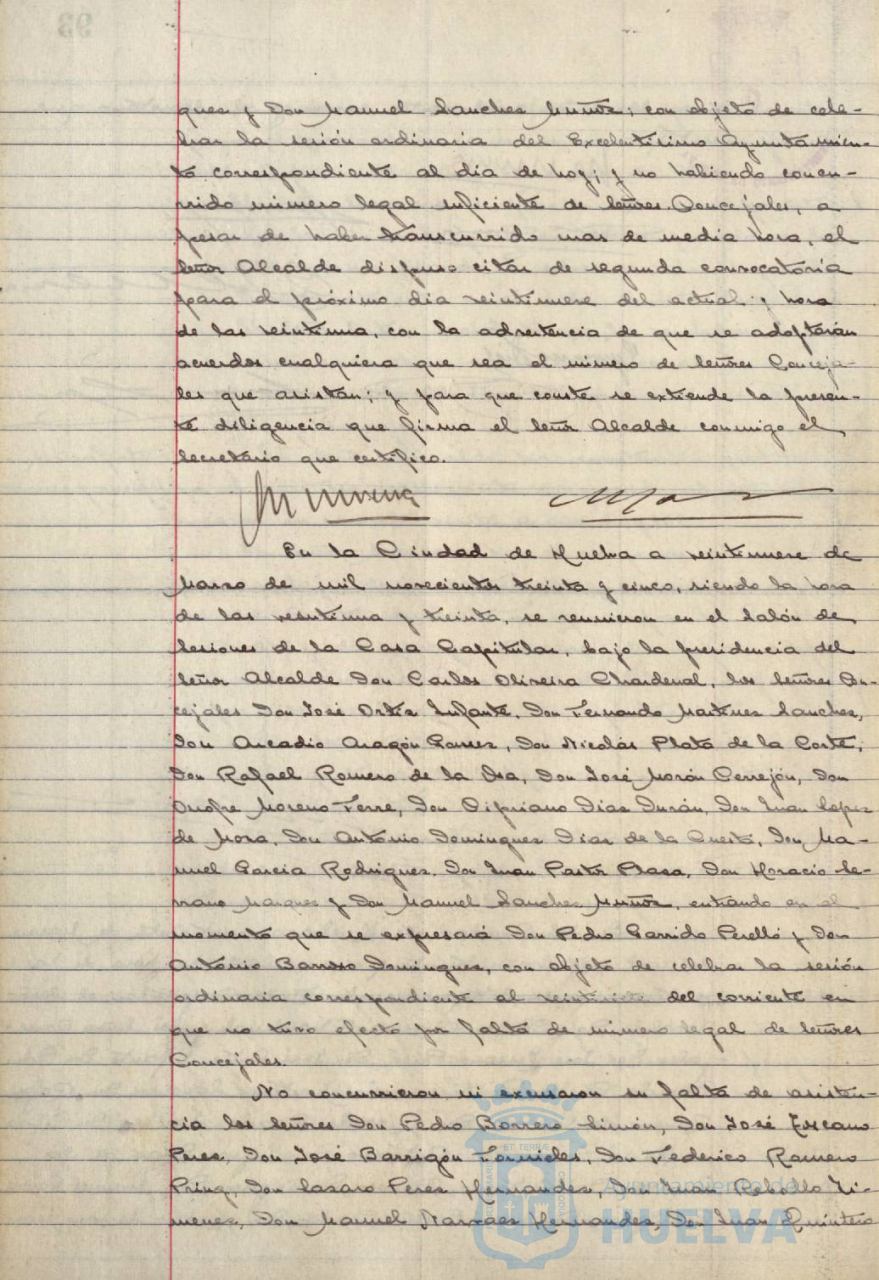 ques y Don Manuel Sanchez Muñoz; con objeto de cele-
brar la sesión ordinaria del Excelentísimo Ayuntamien-
to correspondiente al dia de hoy; y no habiendo concu-
rrido número legal suficiente de señores Concejales, a
pesar de haber transcurrido mas de media hora, el
señor Alcalde dispuso citar de segunda convocatoria
para el próximo dia veintinueve del actual y hora
de las veintiuna, con la advertencia de que se adoptarán
acuerdos cualquiera que sea el número de señores Conceja-
les que asistan; y para que conste se extiende la presen-
te diligencia que firma el señor Alcalde conmigo el
Secretario que certifico.
En la Ciudad de Huelva a veintinueve de
Marzo de mil novecientos treinta y cinco, siendo la hora
de las veintiuna y treinta, se reunieron en el Salón de
Sesiones de la Casa Capitular, bajo la presidencia del
señor Alcalde Don Carlos Oliveira Chardenal, los señores Con-
cejales Don José Ortiz Infante, Don Fernando Martinez Sanchez,
Don Arcadio Aragón Gomez, Don Nicolás Plata de la Corte,
Don Rafael Romero de la Osa, Don José Morón Cerrejón, Don
Onofre Moreno Ferre, Don Cipriano Diaz Durán, Don Juan Lopez
de Mora, Don Antonio Dominguez Diaz de la Cuesta, Don Ma-
nuel Garcia Rodriguez, Don Juan Pastor Plaza, Don Horacio Se-
rrano Marquez y Don Manuel Sanchez Muñoz, entrando en el
momento que se expresará Don Pedro Garrido Perelló y Don
Antonio Barroso Dominguez, con objeto de celebrar la sesión
ordinaria correspondiente al veintisiete del corriente en
que no tuvo efecto por falta de número legal de señores
Concejales.
No concurrieron ni excusaron su falta de asisten-
cia los señores Don Pedro Borrero Limón, Don José Escano
Perez, Don José Barrigón Fornieles, Don Federico Romero
Don Lazaro Perez Hernandez, Don Juan Rebollo Ji-
menez, Don Manuel Narvaez Hernandez, Don Juan Quintero
Ayuntamiento de
HUELVA